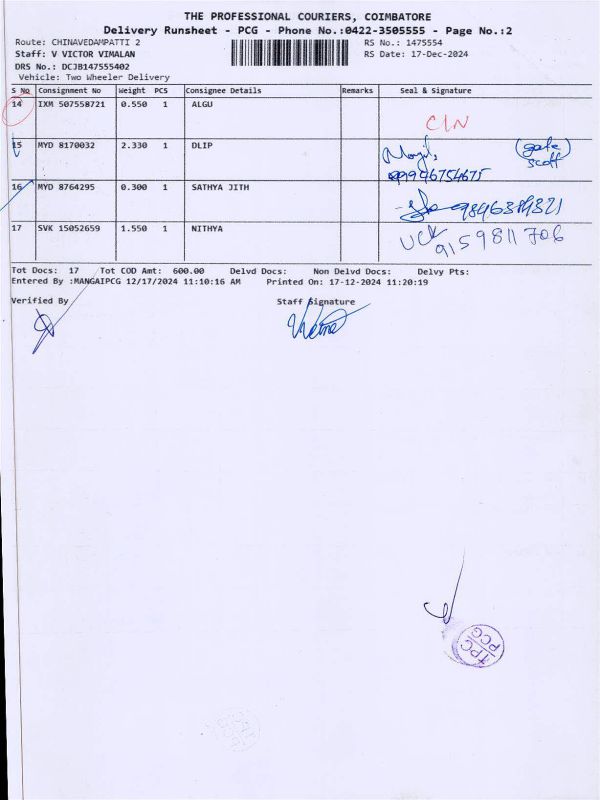 THE PROFESSIONAL COURIERS, COIMBATORE
Delivery Runsheet - PCG - Phone No.:0422-3505555 - Page No.:2
Route: CHINAVEDAMPATTI 2 RS No.: 1475554
Staff: V VICTOR VIMALAN RS Date: 17-Dec-2024
DRS No.: DCJB147555402
Vehicle: Two Wheeler Delivery
S No Consignment No Weight PCS Consignee Details Remarks Seal & Signature
14 IXM 507558721 0.550 1 ALGU
CIN
15 MYD 8170032 2.330 1 DLIP
(gate
16 MYD 8764295 0.300 1 SATHYA JITH
17 SVK 15052659 1.550 1 NITHYA
9159811706
Tot Docs: 17 Tot COD Amt: 600.00 Delvd Docs: Non Delvd Docs: Delvy Pts:
Entered By :MANGAIPCG 12/17/2024 11:10:16 AM Printed On: 17-12-2024 11:20:19
Verified By Staff Signature
TPC
PCG